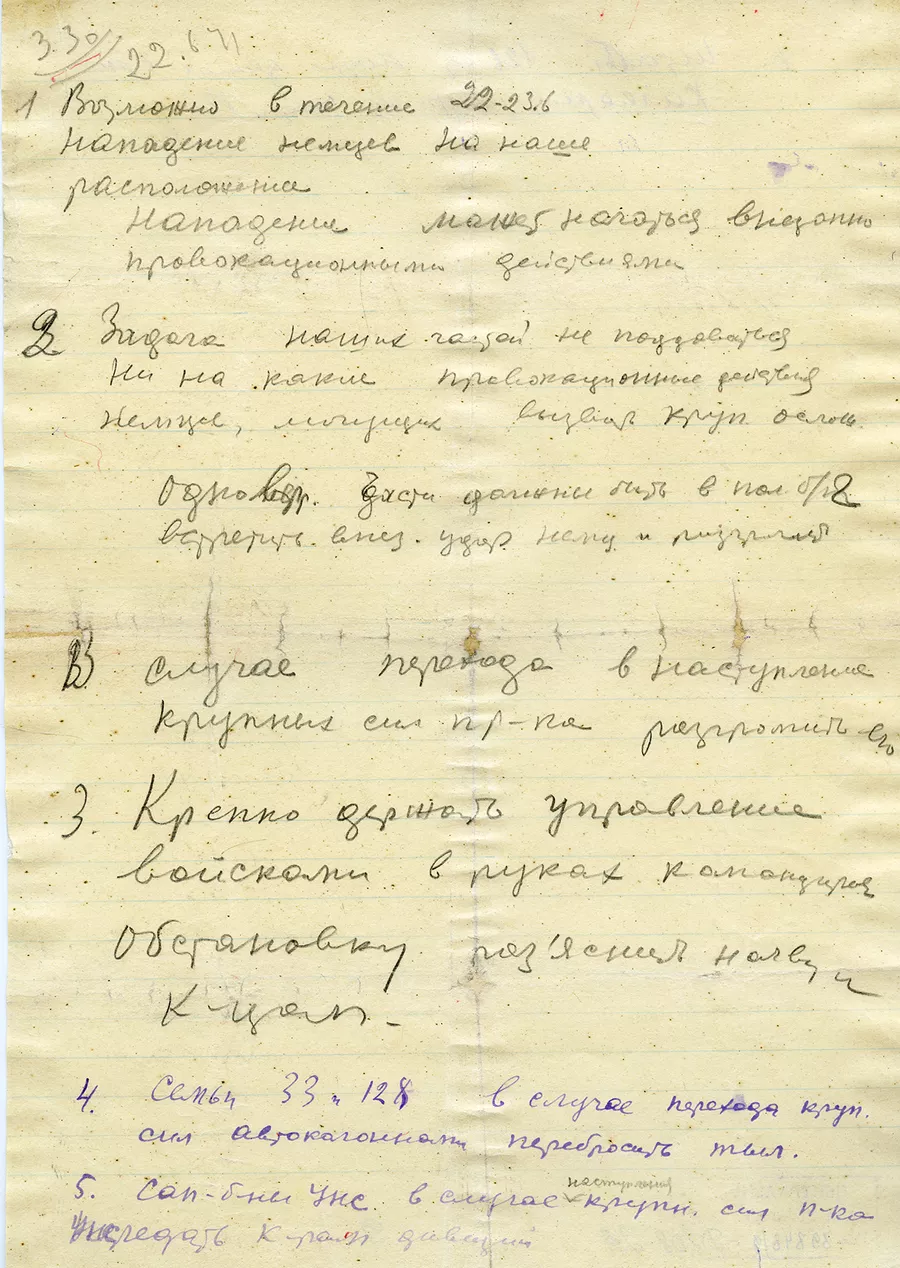 3.30 22.6.41
1 Возможно в течение 22-23.6
Нападение немцев на наше
расположение
Нападение может начаться внезапно
провокационными действиями
2 Задача наших частей не поддоваться
Ни на какие провокационные действия
немцев, могущих вызвать круп. ослож.
Одновр. Части должны быть в пол б/г
встретить внез. удар немц и разгромить
В случае перехода в наступление
крупных сил пр-ка разгромить его
3. Крепко держать управление
войсками в руках командиров
Обстановку раз'яснить начву и
к-цам.
4. Семьи 33 и 128 в случае перехода круп.
сил автокалоннами перебросить тыл.
5. Сап-б-ны Унс. в случае крупн. сил п-ка
наступления
передать к-рам дивизий